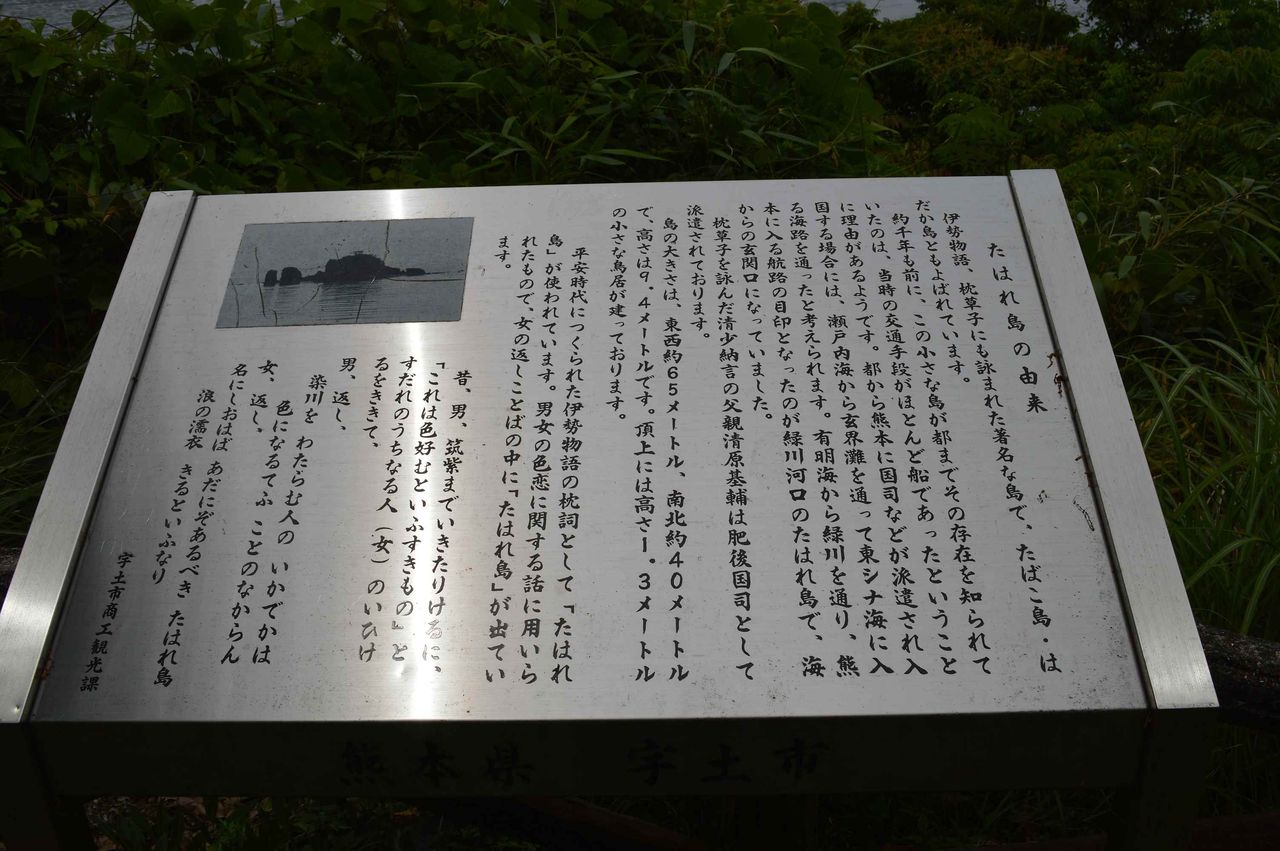 たはれ島の由来
伊勢物語、枕草子にも詠まれた著名な島で、たばこ島・は
だか島ともよばれています。
約千年も前に、この小さな島が都までその存在を知られて
いたのは、当時の交通手段がほとんど船であったということ
に理由があるようです。都から熊本に国司などが派遣され入
国する場合には、瀬戸内海から玄界灘を通って東シナ海に入
る海路を通ったと考えられます。有明海から緑川を通り、熊
本に入る航路の目印となったのが緑川河口のたはれ島で、海
からの玄関口になっていました。
枕草子を詠んだ清少納言の父親清原基輔は肥後国司として
派遣されております。
島の大きさは、東西約65メートル、南北約40メートル
で、高さは9.4メートルです。頂上には高さ1.3メートル
の小さな鳥居が建っております。
平安時代につくられた伊勢物語の枕詞として「たはれ
島」が使われています。男女の色恋に関する話に用いら
れたもので、女の返しことばの中に「たはれ島」が出てい
ます。
昔、男、筑紫までいきたりけるに、
「これは色好むといふすきもの」と
すだれのうちなる人(女)のいひけ
るをききて、
男、返し、
染川を わたらむ人の いかでかは
色になるてふ ことのなからん
女、返し、
名にしおはば あだにぞあるべき たはれ島
浪の濡衣 きるといふなり
宇土市商工観光課
熊本県 宇土市